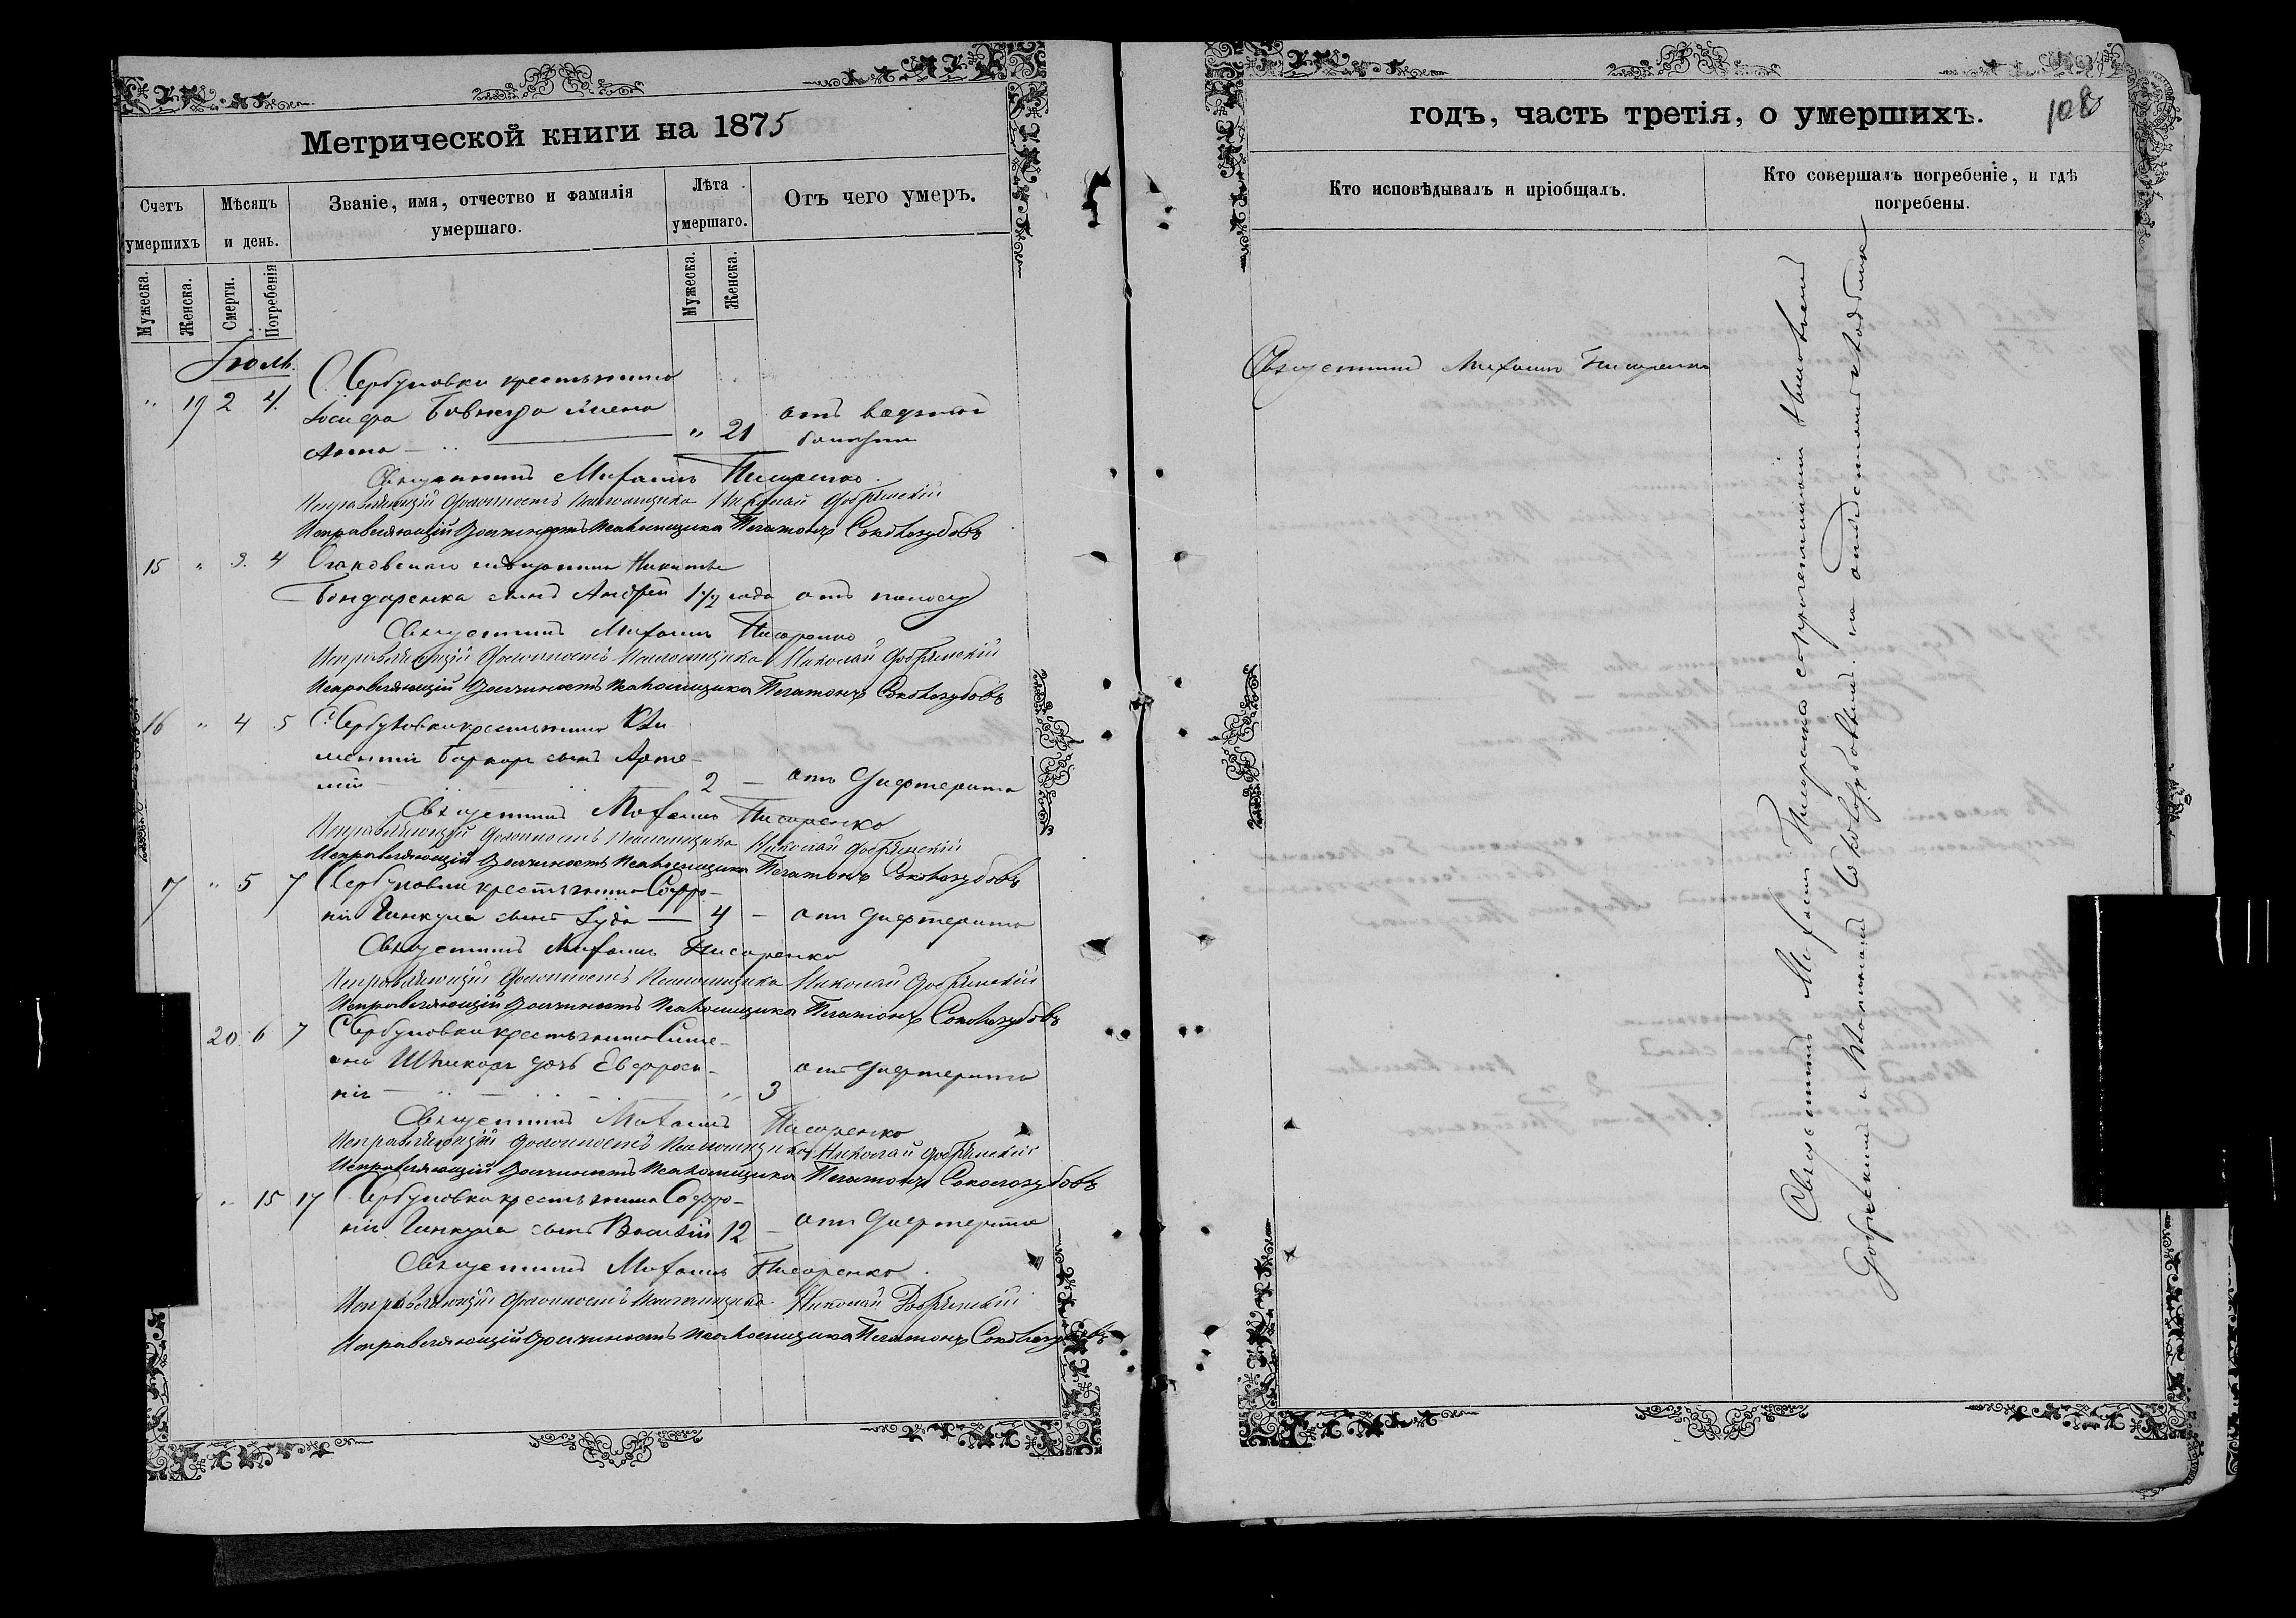 Метрической книги на 1875
Счетъ умершихъ
Мѣсяцъ и день.
Званіе, имя, отчество и фамилія умершаго.
Лѣта умершаго.
Отъ чего умеръ.
Мужеска.
Женска.
Смерти.
Погребенія
Мужеска.
Женска.
Іюль.
С. Сербуловки крестьянина
" 19 2 4. Іосифа жена " 21 отъ водяной
Анна болѣзни
Священникъ Михаилъ Писаренко.
Исправляющій должность псаломщика Николай Добрянскій
Исправляющій должность псаломщика Платонъ Соколозубовъ
15 " 3. 4 Очаковскаго мѣщанина Никиты
Бондаренка сынъ Андрей 1 1/2 года отъ поносу
Священникъ Михаилъ Писаренко
Исправляющій должность псаломщика Николай Добрянскій
Исправляющій должность псаломщика Платонъ Соколозубовъ
16 " 4 5 С. Сербуловки крестьянина Кли-
ментія сынъ Арте-
мій 2 — отъ дифтерита
Священникъ Михаилъ Писаренко
Исправляющій должность псаломщика Николай Добрянскій
Исправляющій должность псаломщика Платонъ Соколозубовъ
17 " 5 7 Сербуловки крестьянина Софро-
нія Гинкула сынъ Іуда — 4 — отъ дифтерита
Священникъ Михаилъ Писаренко
Исправляющій должность псаломщика Николай Добрянскій
Исправляющій должность псаломщика Платонъ Соколозубовъ
20 6 7 Сербуловки крестьянина Симе-
она дочь Евфроси- отъ дифтерита
нія " 3
Священникъ Михаилъ Писаренко
Исправляющій должность псаломщика Николай Добрянскій
Исправляющій должность псаломщика Платонъ Соколозубовъ
" 15 17 Сербуловки крестьянина Софро-
нія Гинкула сынъ Василій 12 — отъ дифтерита
Священникъ Михаилъ Писаренко.
Исправляющій должность псаломщика Николай Добрянскій
Исправляющій должность псаломщика Платонъ Соколозубовъ
годъ, часть третія, о умершихъ.
108
Кто исповѣдывалъ и пріобщалъ.
Кто совершалъ погребеніе, и гдѣ погребены.
Священникъ Михаилъ Писаренко
Священникъ Михаилъ Писаренко съ причетниками Николаемъ
Добрянскимъ и Платономъ Соколозубовымъ. на отведенномъ кладбищѣ